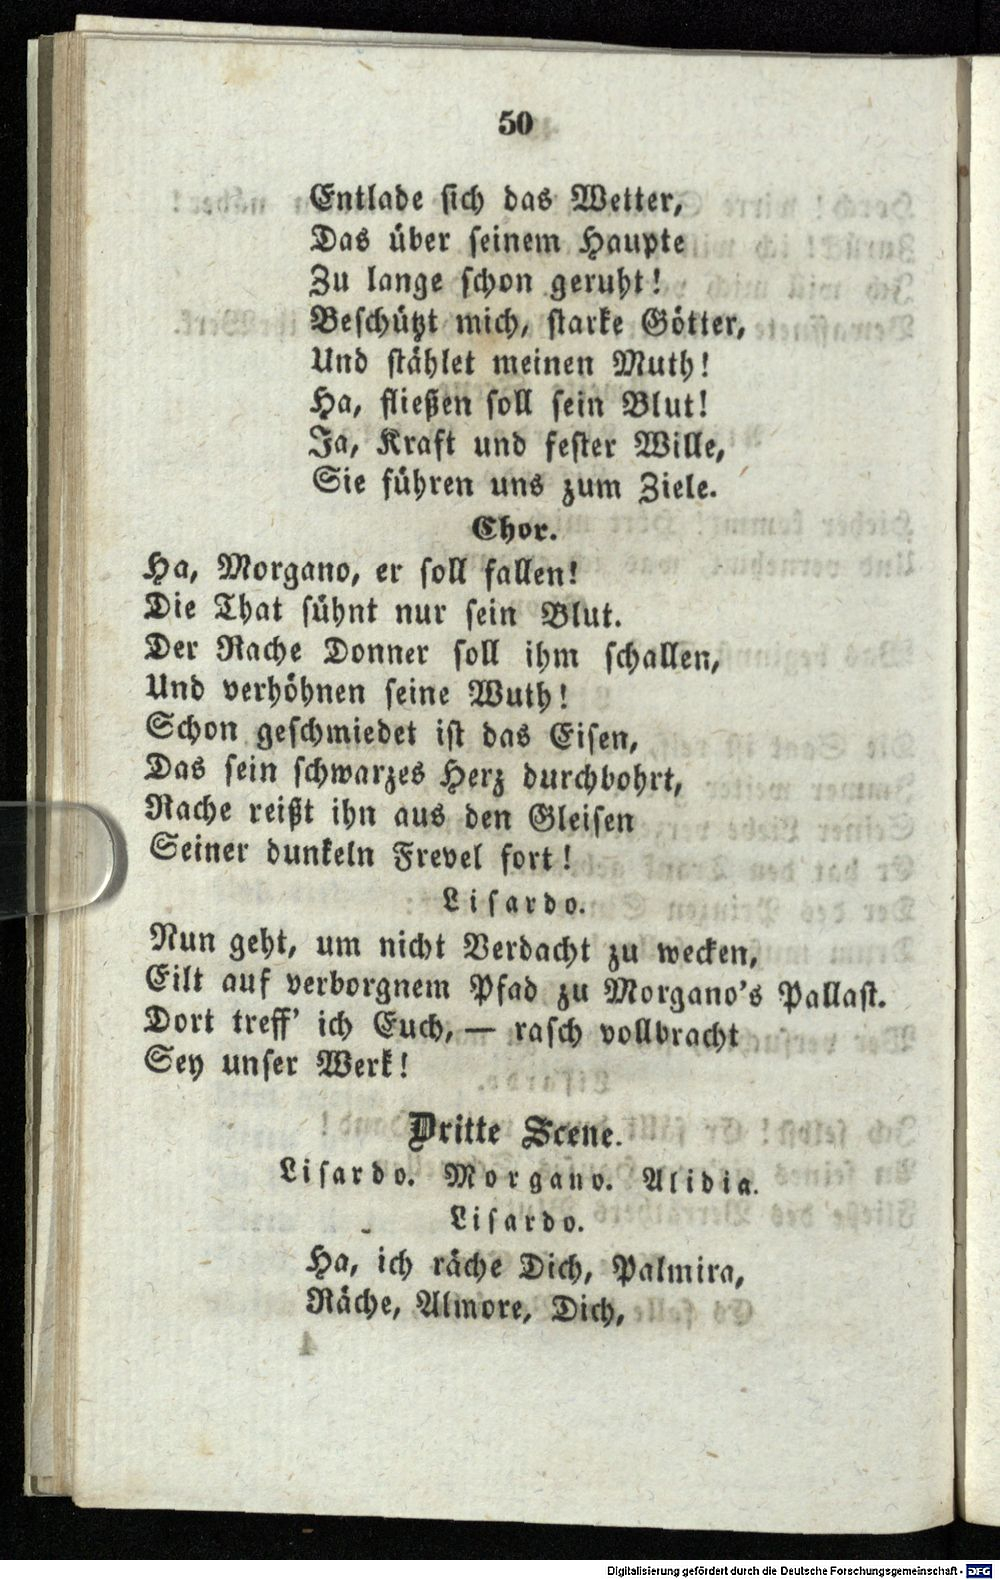 50
Entlade sich das Wetter,
Das über seinem Haupte
Zu lange schon geruht!
Beschützt mich, starke Götter,
Und stählet meinen Muth!
Ha, fließen soll sein Blut!
Ja, Kraft und fester Wille,
Sie führen uns zum Ziele.
Chor.
Ha, Morgano, er soll fallen!
Die That sühnt nur sein Blut.
Der Rache Donner soll ihm schallen,
Und verhöhnen seine Wuth!
Schon geschmiedet ist das Eisen,
Das sein schwarzes Herz durchbohrt,
Rache reißt ihn aus den Gleisen
Seiner dunkeln Frevel fort!
Lisardo.
Nun geht, um nicht Verdacht zu wecken,
Eilt auf verborgnem Pfad zu Morgano's Pallast.
Dort treff' ich Euch, — rasch vollbracht
Sey unser Werk!
Dritte Scene.
Lisardo. Morgano. Alidia.
Lisardo.
Ha, ich räche Dich, Palmira,
Räche, Almore, Dich,
Digitalisierung gefördert durch die Deutsche Forschungsgemeinschaft - DFG